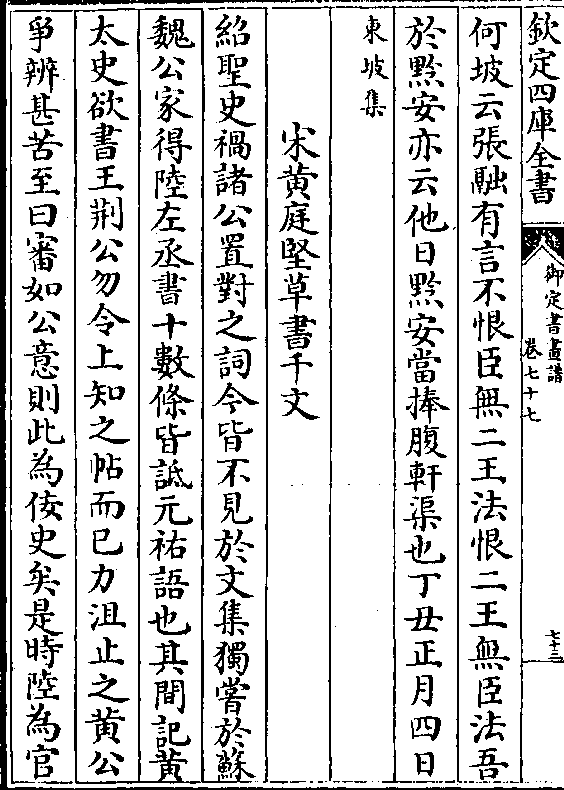 欽定四庫全書
御定書畫譜
卷七十七
七十三
何坡云張融有言不恨臣無二王法恨二王無臣法吾
於黙安亦云他日黙安當捧腹軒渠也丁丑正月四日
東坡集
宋黄庭堅草書千文
紹聖史禍諸公置對之詞今皆不見於文集獨嘗於蘇
魏公家得陸左丞書十數條皆詆元祐語也其間記黄
太史欲書王荆公勿令上知之帖而已力沮止之黄公
爭辨甚苦至曰審如公意則此為佞史矣是時陸為官